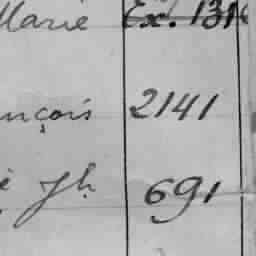 Marie Ex. 131
nçois 2141
Jh 691